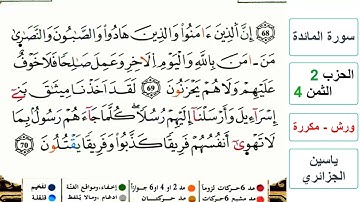 68 إِنَّ ٱلذِينَ ءَامَنُواْ وَالذِينَ هَادُواْ وَالصَّٰبُونَ وَالنَّصَٰرَىٰ
مَنَ ـ امَنَ بِاللَّهِ وَالْيَوْمِ اِلَاخِرِ وَعَمِلَ صَٰلِحاً فَلَا خَوْفٌ
عَلَيْهِمْ وَلَا هُمْ يَحْزَنُونَ 69 لَقَدَ اَخَذْنَا مِيثَٰقَ بَنِےٓ
إِسْرَآءِيلَ وَأَرْسَلْنَآ إِلَيْهِمْ رُسُلاً كُلَّمَا جَآءَهُمْ رَسُولُۢ بِمَا
لَا تَهْوَىٰٓ أَنفُسُهُمْ فَرِيقاً كَذَّبُواْ وَفَرِيقاً يَقْتُلُونَ 70
سورة المائدة
الحزب 2
الثمن 4
ورش - مكررة
ياسين
الجزائري
مد 6 حركات لزوما
مد 2 أو 4 أو 6 جوازا
إخفاء، ومواقع الغنة
تفخيم
مد مشبع 6 حركات
مد حركتان
ادغام، ومالا يلفظ
قلقلة